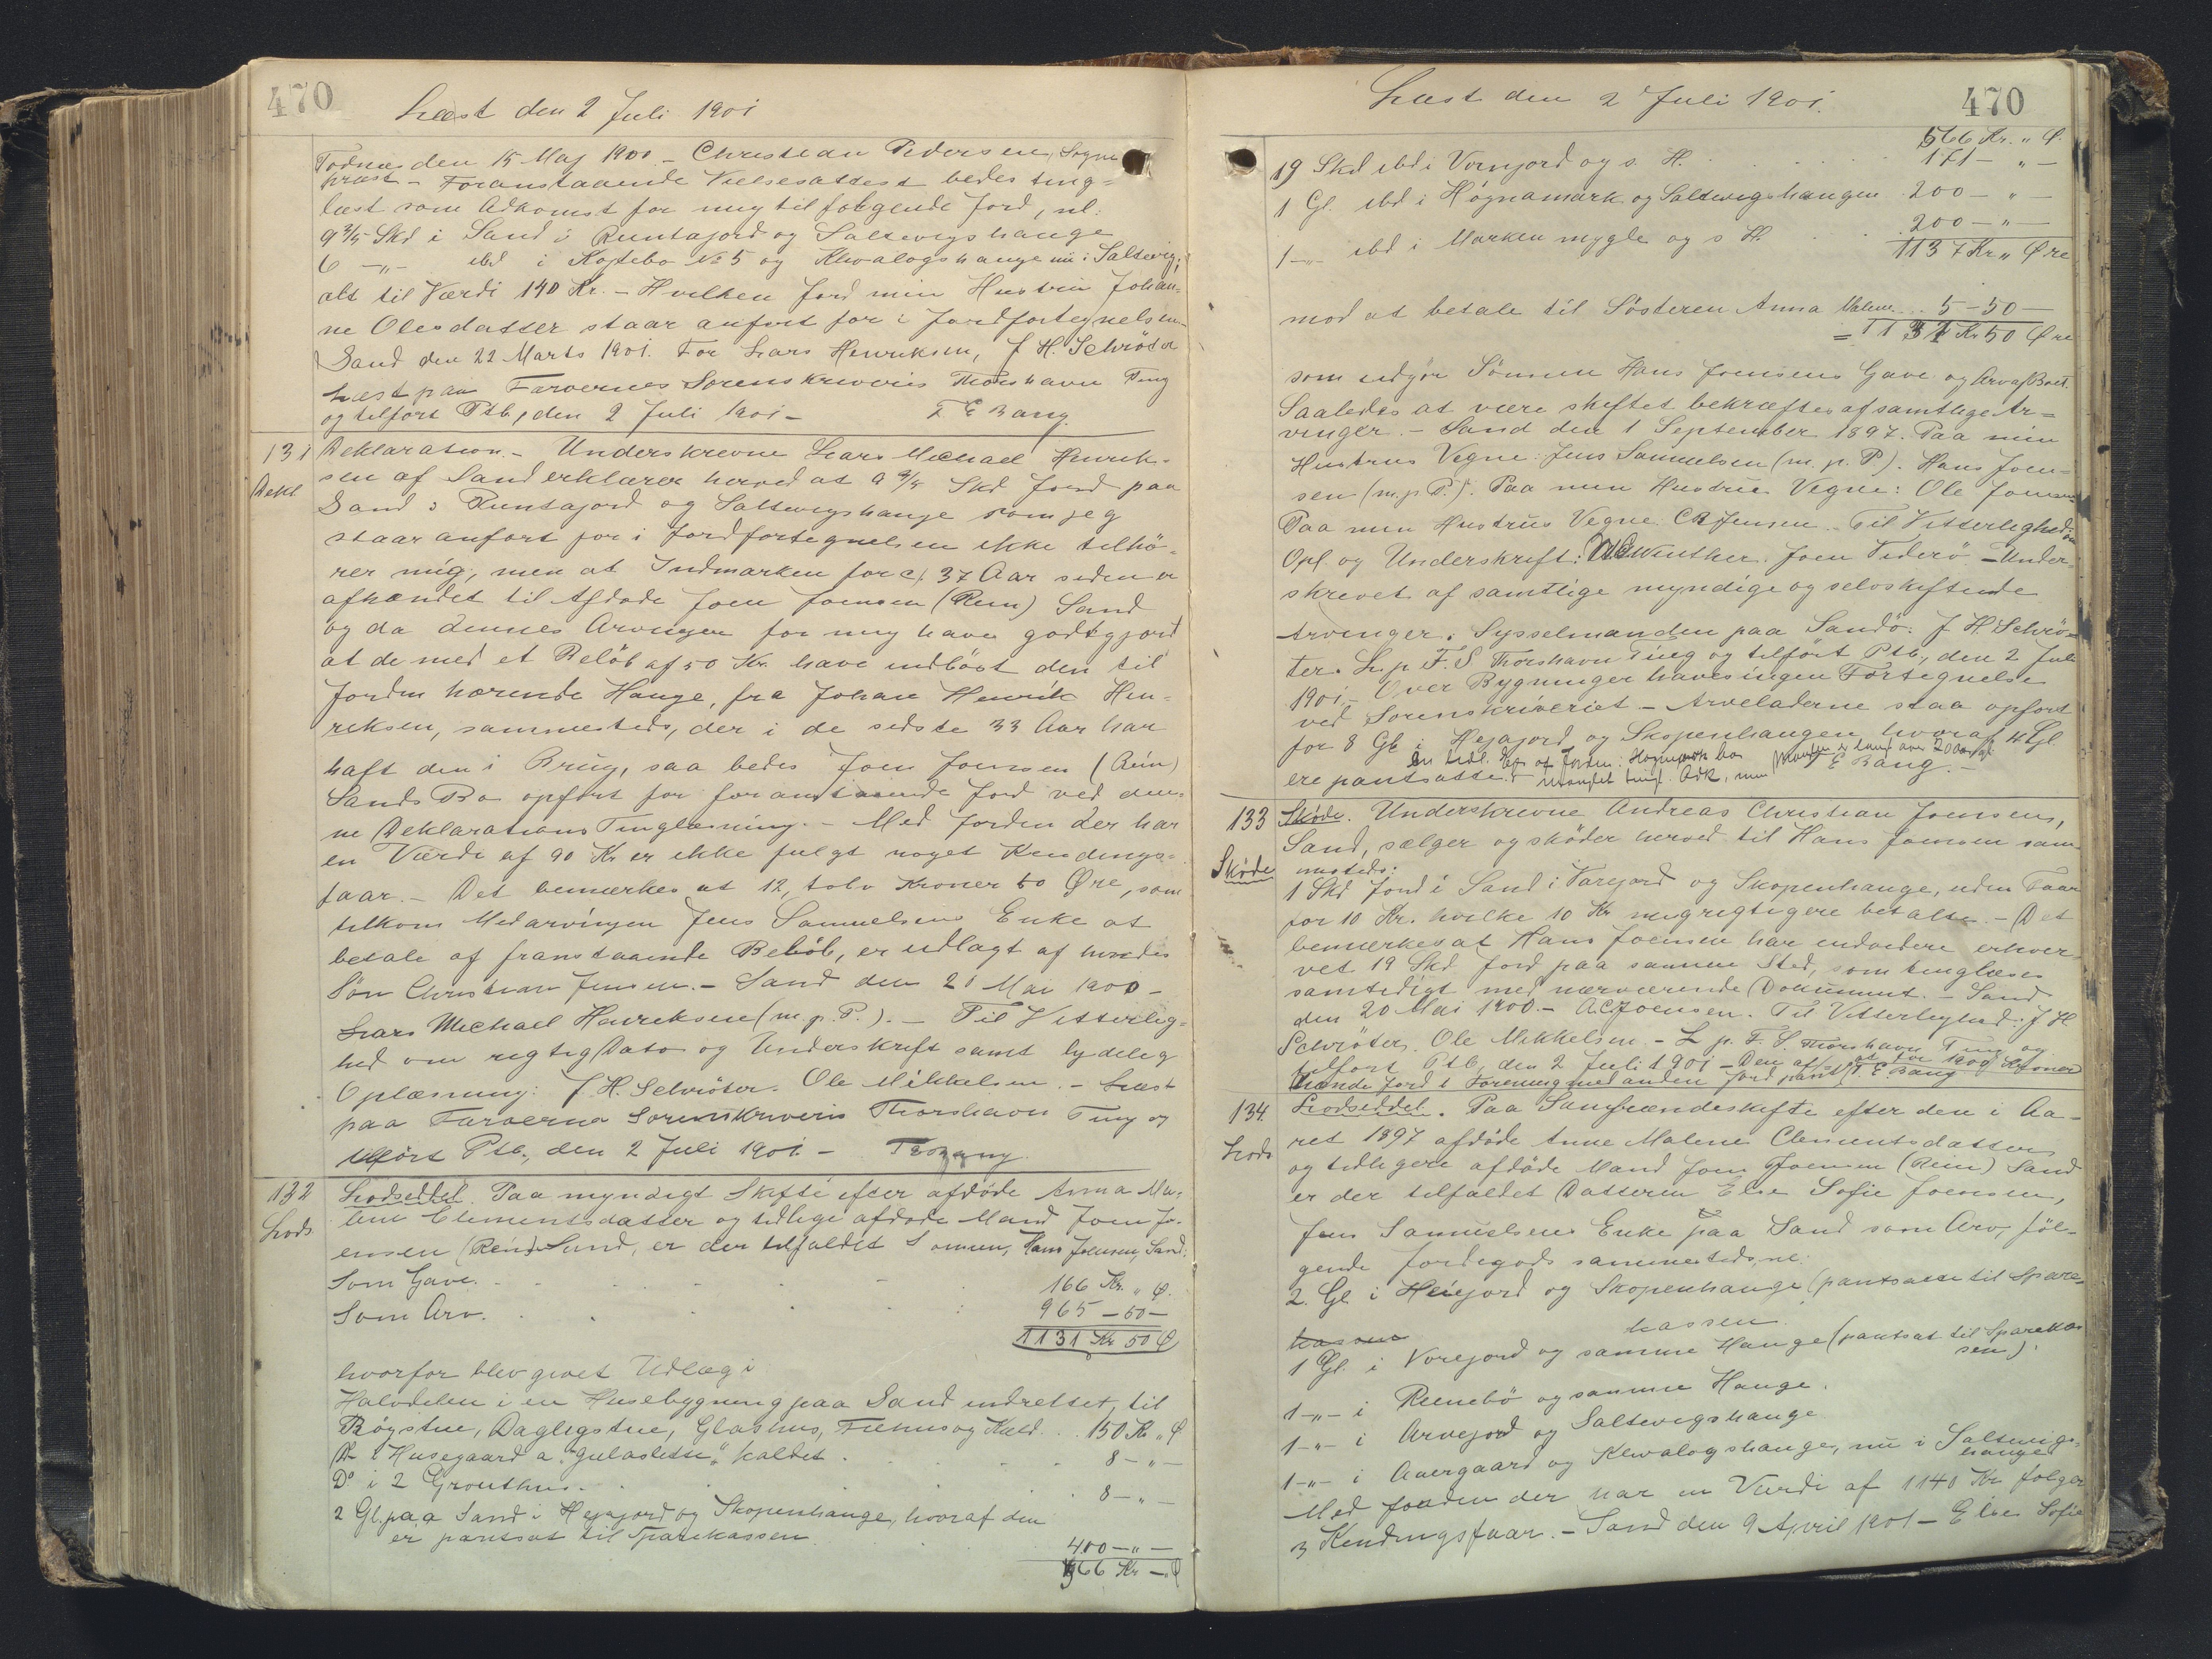 470
Læst den 2 Juli 1901
Todnæs den 15 Maj 1900. - Christian Pedersen, Sogne
præst - Foranstaaende Vielsesattest bedes ting=
læst som Adkomst for mig til følgende Jord, nl:
9 3/5 Skd i Sand i Runtajord og Saltevigshauge
6 -"- ibd i Kojtebo No 5 og Klivalogshauge nu i Saltevig;
alt til Værdi 140 Kr. - Hvilken Jord min Hustru Johan=
ne Olesdatter staar anført for i Jordfortegnelsen.
Sand den 22 Marts 1901. For Lars Henriksen, J. H. Schrøter
Læst paa Færøernes Sorenskriveris Thorshavn Ting
og tilført Ptb, den 2 Juli 1901 - F. E Bang.
131 Deklaration. - Underskrevne Lars Michael Henrik-
Dekl sen af Sand erklærer herved at 9 3/5 Skd Jord paa
Sand i Runtajord og Saltevigshauge som jeg
staar anført for i Jordfortegnelsen ikke tilhö-
rer mig, men at Indmarken for c/ 37 Aar siden er
afhændet til Afdøde Joen Joensen (Rein) Sand
og da dennes Arvinger for mig have godtgjort
at de med et Beløb af 50 Kr. have indløst den til
Jorden hørende Hauge, fra Johan Henrik Hen-
riksen, sammesteds, der i de sidste 33 Aar har
haft den i Brug, saa bedes Joen Joensen (Rein)
Sands Bo opført for foranstaaende Jord ved den-
ne Deklarations Tinglæsning. - Med Jorden der har
en Værdi af 90 Kr er ikke fulgt noget Kendings=
faar. - Det bemærkes at 12, tolv Kroner 50 Øre, som
tilkom Medarvingen Jens Samuelsens Enke at
betale af franstaaende Beløb, er udlagt af hendes
Søn Christian Jensen. - Sand den 20 Mai 1900 -
Lars Michael Henriksen (m. p. P.). - Til Vitterlig=
hed om rigtig Dato og Underskrift samt lydelig
Oplæsning: J. H. Schrøter. Ole Mikkelsen. - Læst
paa Færøerne Sorenskriveris Thorshavn Ting og
tilført Ptb., den 2 Juli 1901 - F E Bang
132 Lodseddel. Paa myndigt Skifte efter afdøde Anna Ma-
Lods lene Clementsdatter og tidlige afdøde Mand Joen Jo-
ensen (Rein) Sand, er der tilfaldet Sønnen, Hans Joensen, Sand:
Som Gave. 166 Kr. " Ø.
Som Arv. 965 - 50 -
1131 Kr 50 Ø
hvorfor blev givet Udlæg i
Halvdelen i en Husebygning paa Sand indrettet til
Røgstue, Dagligstue, Glashus, Fæhus og Kæld. . 150 Kr " Ø
Do i Husegaard a. "Gulasletti" kaldet. 8 - " -
Do i 2 Grouthus. 8 - " -
2 Gl. paa Sand i Hejajord og Skopenhauge, hvoraf den
er pantsat til Sparekassen 400 - " -
566 Kr - " Ø
470
Læst den 2 Juli 1901.
566 Kr. " Ø.
19 Skd ibd i Vorujord og s. H. 171 - " -
1 Gl. ibd i Høgnamark og Saltevigshaugen 200 - " -
1 -"- ibd i Marken mygle og s H. 200 - " -
1137 Kr " Øre
mod at betale til Søsteren Anna Malene . . 5 - 50 -
= 1131 Kr 50 Øre
som udgör Sønnen Hans Joensens Gave og Arv af Boet
Saaledes at være skiftet bekræftes af samtlige Ar=
vinger. - Sand den 1 September 1897. Paa min
Hustrus Vegne: Jens Samuelsen (m. p. P). Hans Joen-
sen (m. p. P.). Paa min Hustrus Vegne: Ole Joensen
Paa min Hustrus Vegne CR Jensen. - Til Vitterlighed om
Opl. og Underskrift: Winther. Joen Viderö - Under-
skrevet af samtlige myndige og selvskiftende
Arvinger. Sysselmanden paa Sandö. J H Schrö-
ter. L. p. F. S Thorshavn Ting og tilført Ptb., den 2 Juli
1901. - Over Bygninger haves ingen Fortegnelse
ved Sorenskriveriet - Arveladerne staa opført
for 8 Gl i Hejajord og Skopenhaugen hvoraf 4 Gl
ere pantsatte. F E Bang. -
133 Sköde. Underskrevne Andreas Christian Joensens,
Sand, sælger og sköder herved til Hans Joensen sam
Sköde mesteds:
1 Skd Jord i Sand i Vorejord og Skopenhauge, uden Faar
for 10 Kr. hvilke 10 Kr mig rigtig ere betalte. - Det
bemærkes at Hans Joensen har endvidere erhver-
vet 19 Skd Jord paa samme Sted, som tinglæses
samtidigt med nærværende Dokument. - Sand
den 20 Mai 1900. - AC Joensen. Til Vitterlighed. J H
Schrøter. Ole Mikkelsen. - L. p. F. S. Thorshavn Ting og
tilført Ptb, den 2 Juli 1901 - Den af-
hænde Jord i Forening med anden Jord pant- sat for 1200 Kroner F. E. Bang
134. Lodseddel. Paa Samfrændeskifte efter den i Aa-
Lods ret 1897 afdöde Anne Malene Clementsdatter
og tidligere afdöde Mand Joen Joensen (Rein) Sand
er der tilfaldet Datteren Else Sofie Joensen,
Jens Samuelsens Enke paa Sand som Arv, föl-
gende Jordegods sammesteds, nl:
2. Gl i Heiejord og Skopenhauge (pantsatte til Spare-
kassen
1 Gl. i Vorejord og samme Hauge (pantsat til Sparekas
sen).
1 -"- i Reinebö og samme Hauge.
1 -"- i Arvejord og Saltevigshauge
1 -"- i Auergaard og Klivalogshauge, nu i Saltevigs-
hauge
Med Jorden der har en Værdi af 1140 Kr følger
3 Kendingsfaar. - Sand den 9 April 1901 - Else Sofie